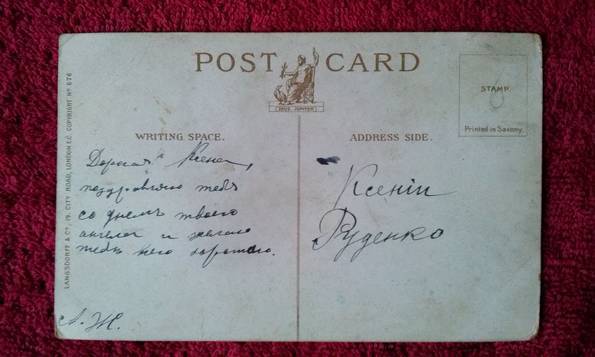 POST CARD
ZEUS JUPITER
STAMP
6
Printed in Saxony.
WRITING SPACE.
ADDRESS SIDE.
LANGSDORFF & Co, 19, CITY ROAD, LONDON E.C. COPYRIGHT No 676
Дорогая Ксеня,
поздравляю тебя
со днемъ твоего
ангела и желаю
тебѣ всего хорошаго.
А. Ж.
Ксеніи
Руденко